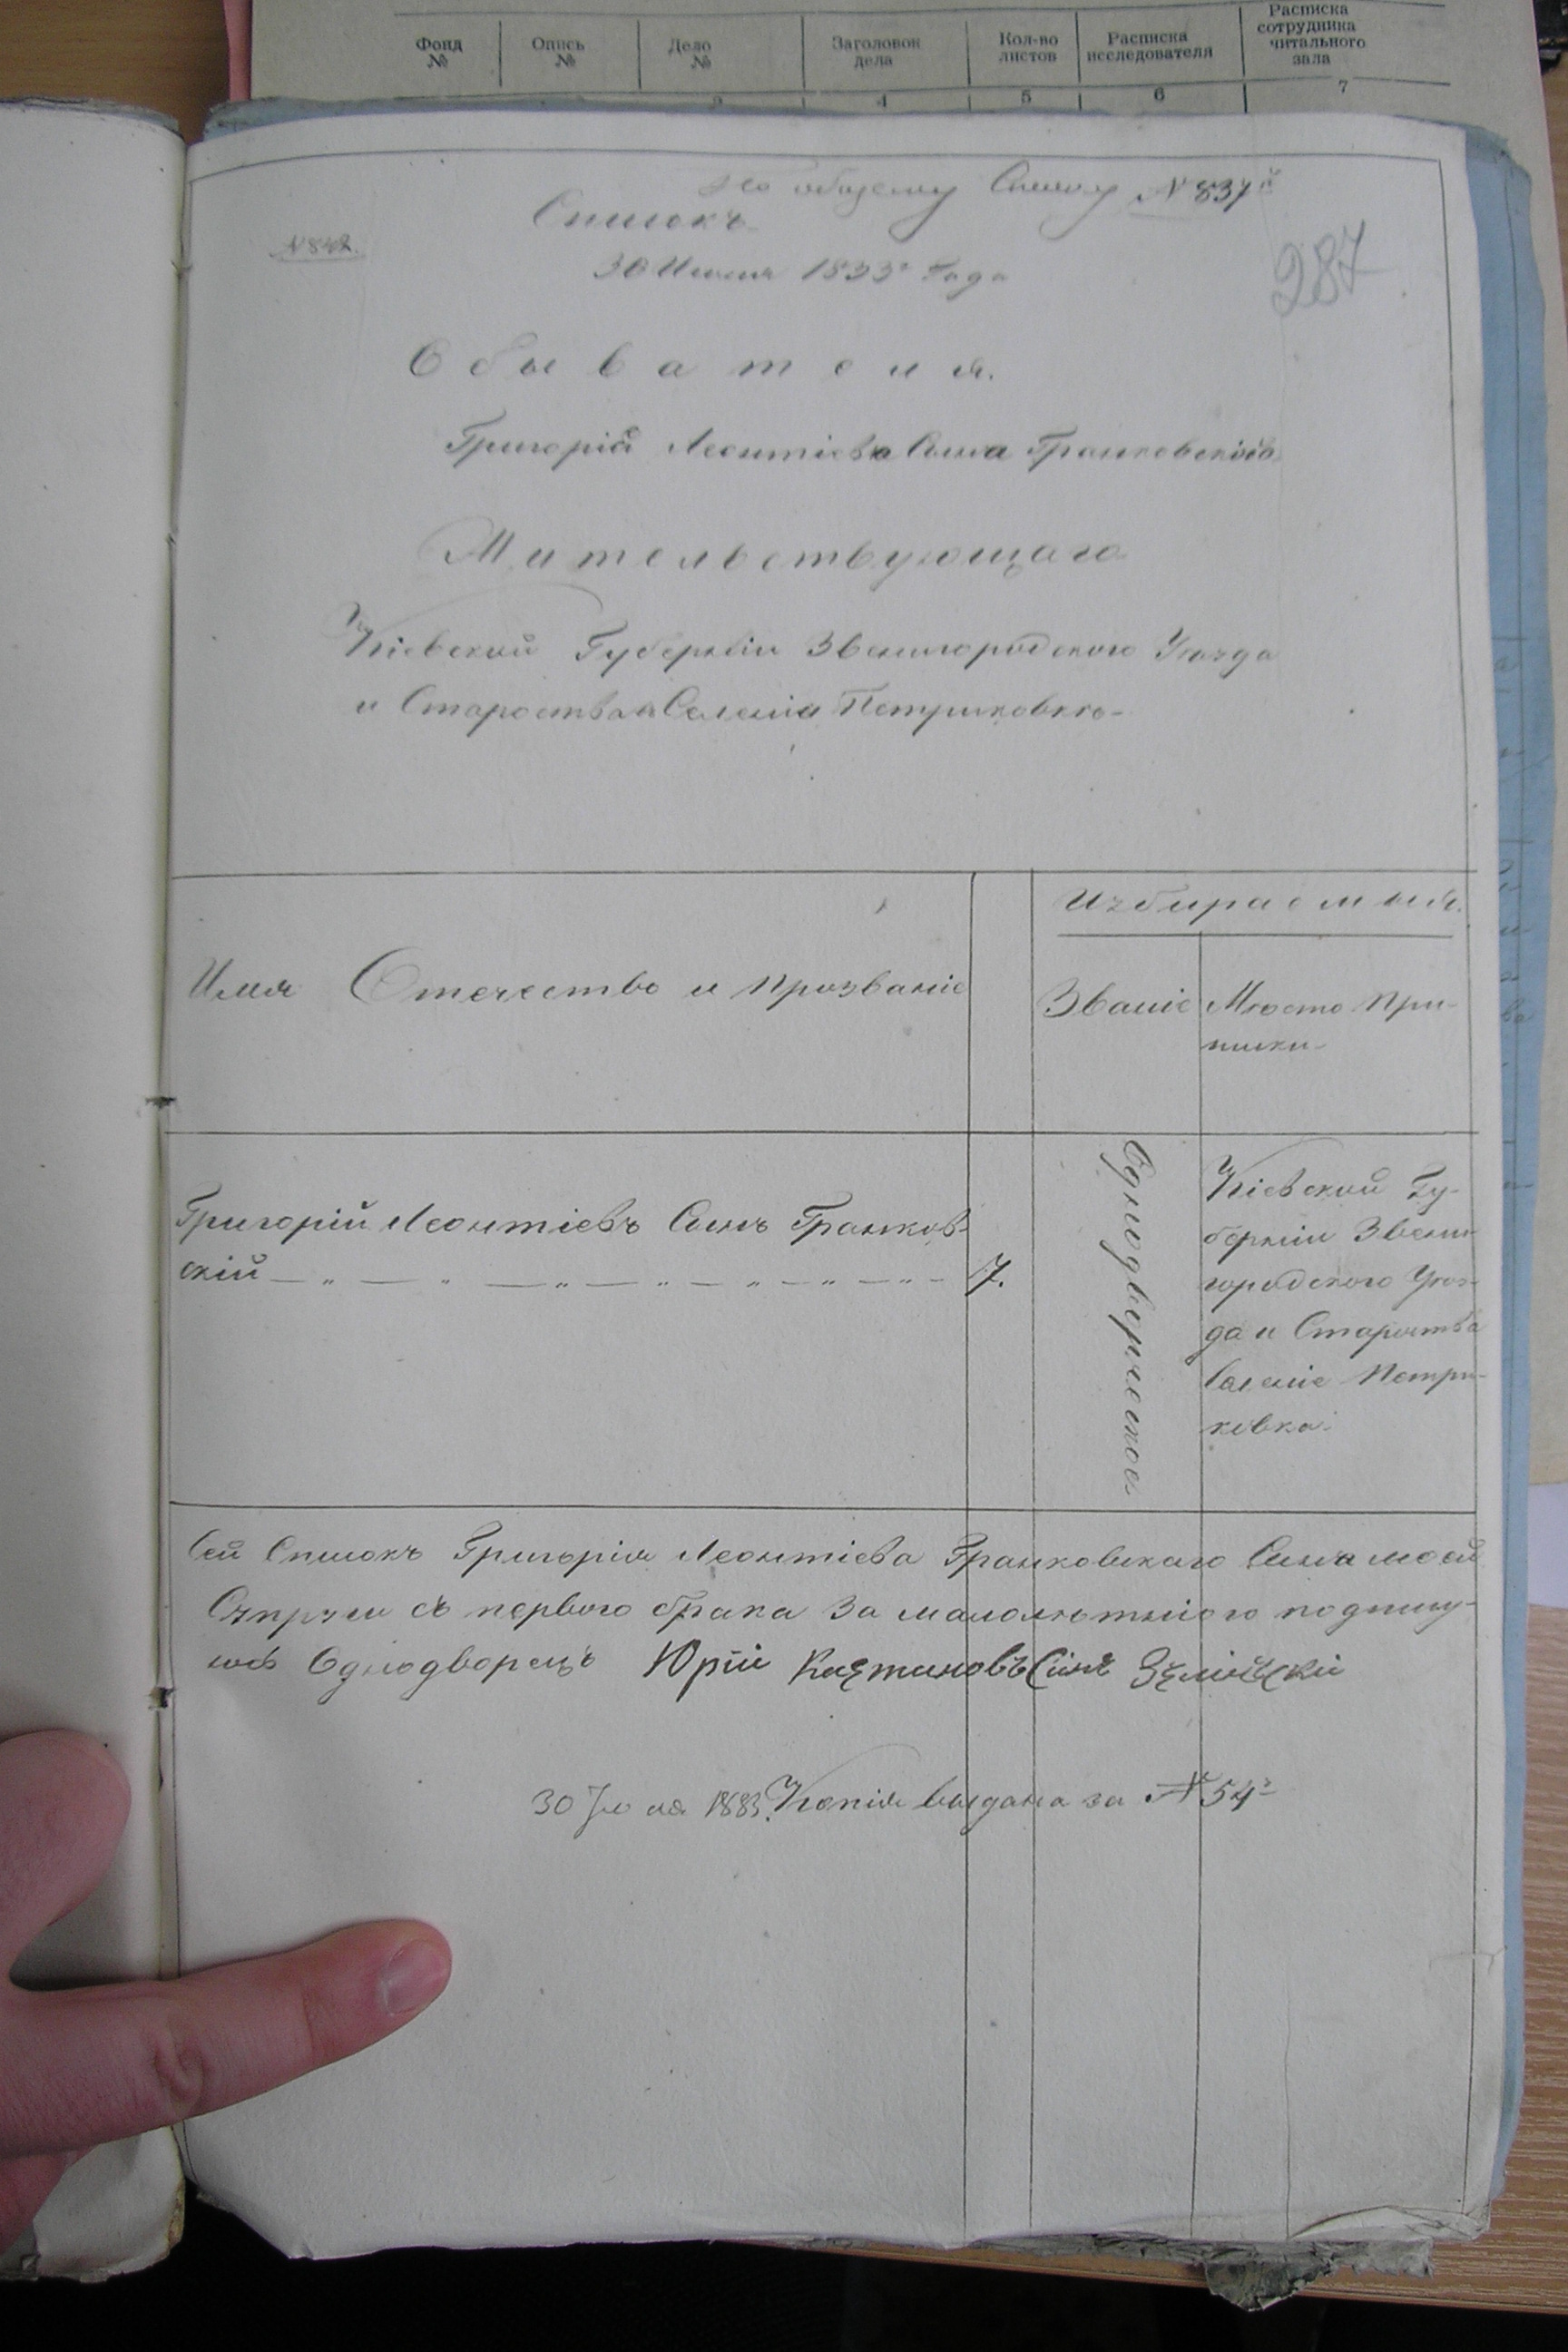 Фонд №
Опись №
Дело №
Заголовок дела
Кол-во листов
Расписка исследователя
Расписка сотрудника читального зала
3 4 5 6 7
По общему Списку № 837й
Списокъ
№ 842.
287
30 Июля 1833го Года
Обывателя.
Григорій Леонтіева Сына Гранковскаго
Жительствующаго
Кіевской Губерніи Звенигородского Уѣзда
и Староства Селенія Петриковки
Имя Отечество и Прозваніе
Избираемыя.
Званіе
Мѣсто При-
писки
Григорій Леонтіевъ Сынъ Гранков-
скій — „ — „ — „ — „ — „ — „ — „ —
7.
Однодворческое
Кіевской Гу-
берніи Звени-
городского Уѣз-
да и Староства
Селеніе Петри-
ковка
Сей Списокъ Григорія Леонтіева Гранковскаго Сына моей
Супруги съ первого брака За малолѣтніого подпису-
юсь Однодворецъ Юрій Каэтановъ Синъ
30 Июля 1833. Копія выдана за № 54